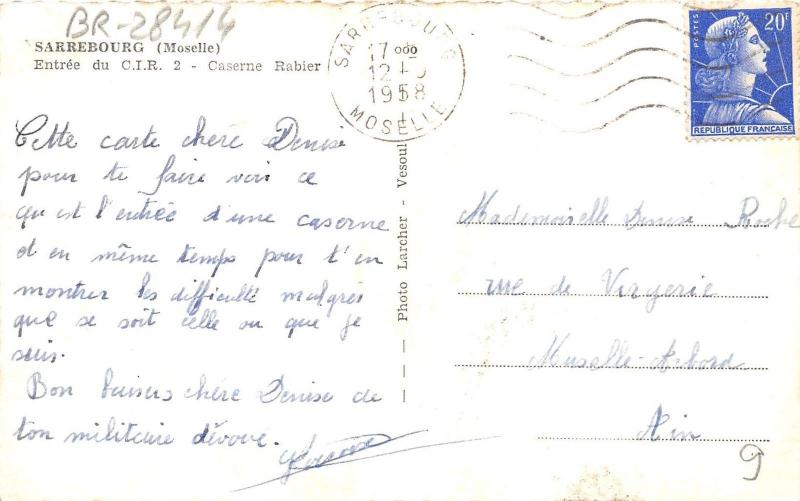 BR-28414
SARREBOURG (Moselle)
Entrée du C.I.R. 2 - Caserne Rabier
SARREBOURG
17
12 - 5
1958
MOSELLE
POSTES
20F
REPUBLIQUE FRANÇAISE
Cette carte chère Denise
pour te faire voir ce
qu est l'entrée d'une caserne
et en même temps pour t'en
montrer les difficulté malgrés
que se soit celle ou que je
suis.
Bon baisers chère Denise de
ton militaire dévoué.
Photo Larcher - Vesoul
Mademoiselle Denise Roche
rue de Vergerie
Ain
9